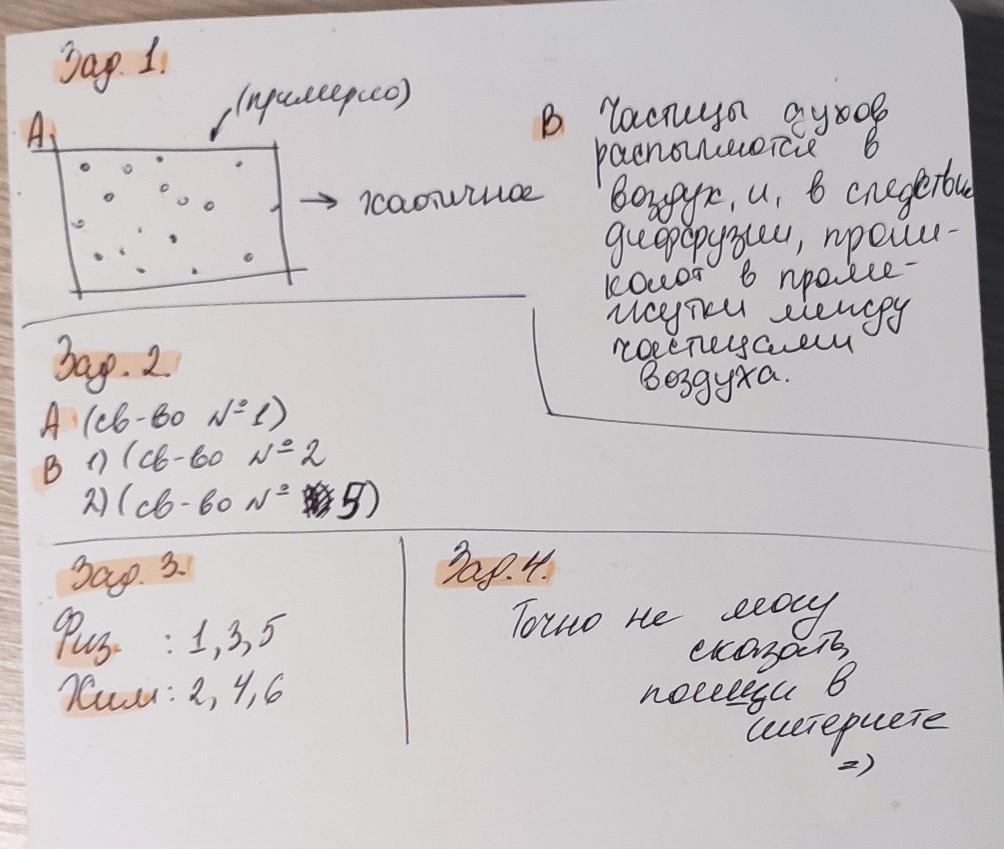 Зад. 1.
(примерно)
А
→ хаотичное
В Частицы духов
распыляются в
воздух, и, в следствие
диффузии, прони-
кают в проме-
жутки между
частицами
воздуха.
Зад. 2.
А (св-во №1)
В 1) (св-во №2
2) (св-во № 5)
Зад. 3.
Физ. : 1, 3, 5
Хим : 2, 4, 6
Зад. 4.
Точно не могу
сказать,
поищи в
интернете
=)